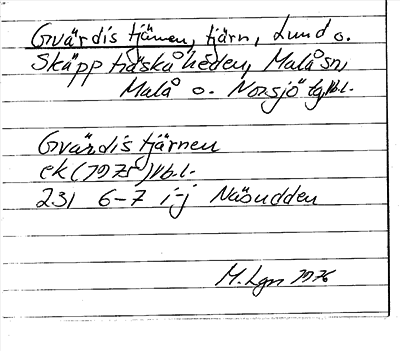 Gvärdis tjärnen, tjärn, Lund o.
Skäppträskåheden, Malå sn,
Malå o. Norsjö tg, Vb.l.
Gvärdistjärnen
ek (1975) Vb.l.
23J 6-7 i-j Näsudden
M. Lgn 1976